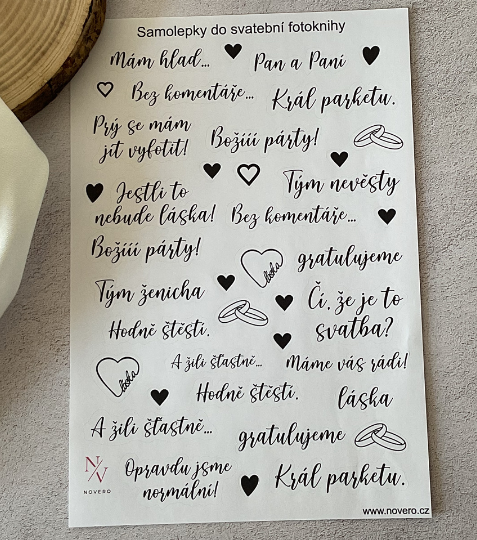 Samolepky do svatební fotoknihy
Mám hlad...
Pan a Paní
Bez komentáře...
Král parketu.
Prý se mám
jít vyfotit!
Božííí párty!
Jestli to
nebude láska!
Tým nevěsty
Bez komentáře...
Božííí párty!
láska
gratulujeme
Tým ženicha
Či, že je to
svatba?
Hodně štěstí.
láska
A žili šťastně...
Máme vás rádi!
Hodně štěstí.
láska
A žili šťastně...
gratulujeme
N/V
NOVERO
Opravdu jsme
normální!
Král parketu.
www.novero.cz